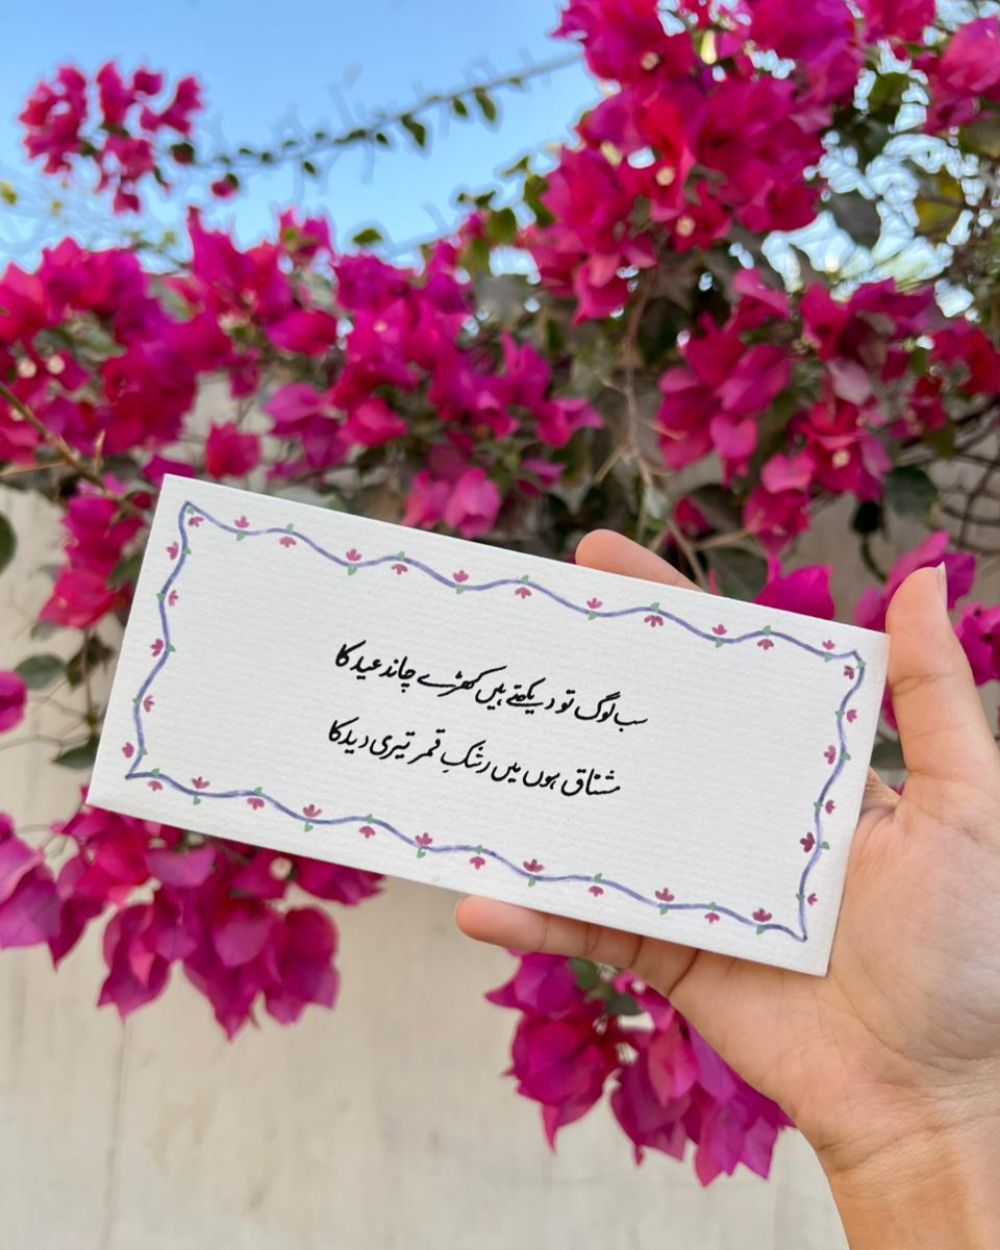 سب لوگ تو دیکھتے ہیں کھڑے چاند عید کا
مشتاق ہوں میں رشکِ قمر تیری دید کا